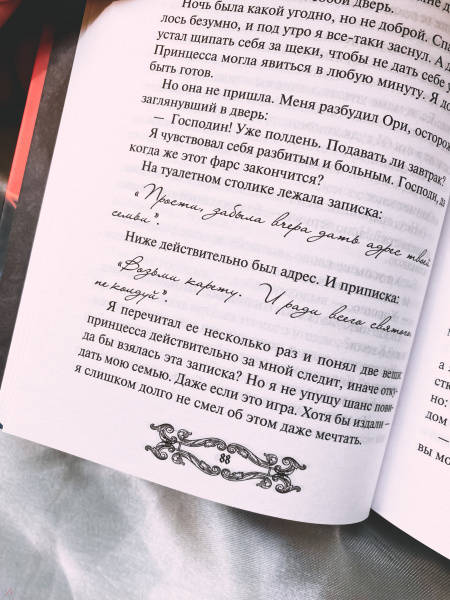 собой дверь.
Ночь была какой угодно, но не доброй. Спа-
лось безумно, и под утро я все-таки заснул. А д
устал щипать себя за щеки, чтобы не дать себе у
Принцесса могла явиться в любую минуту. Я до
быть готов.
Но она не пришла. Меня разбудил Ори, осторож
заглянувший в дверь:
— Господин! Уже полдень. Подавать ли завтрак?
Я чувствовал себя разбитым и больным. Господи, да
когда же этот фарс закончится?
На туалетном столике лежала записка:
"Прости, забыла вчера дать адрес твоей
семьи".
Ниже действительно был адрес. И приписка:
"Возьми карету. И ради всего святого,
не колдуй".
Я перечитал ее несколько раз и понял две вещи:
принцесса действительно за мной следит, иначе отку-
да бы взялась эта записка? Но я не упущу шанс пови-
дать мою семью. Даже если это игра. Хотя бы издали –
я слишком долго не смел об этом даже мечтать.
88
а я
сти
но:
дом
—
вы мо